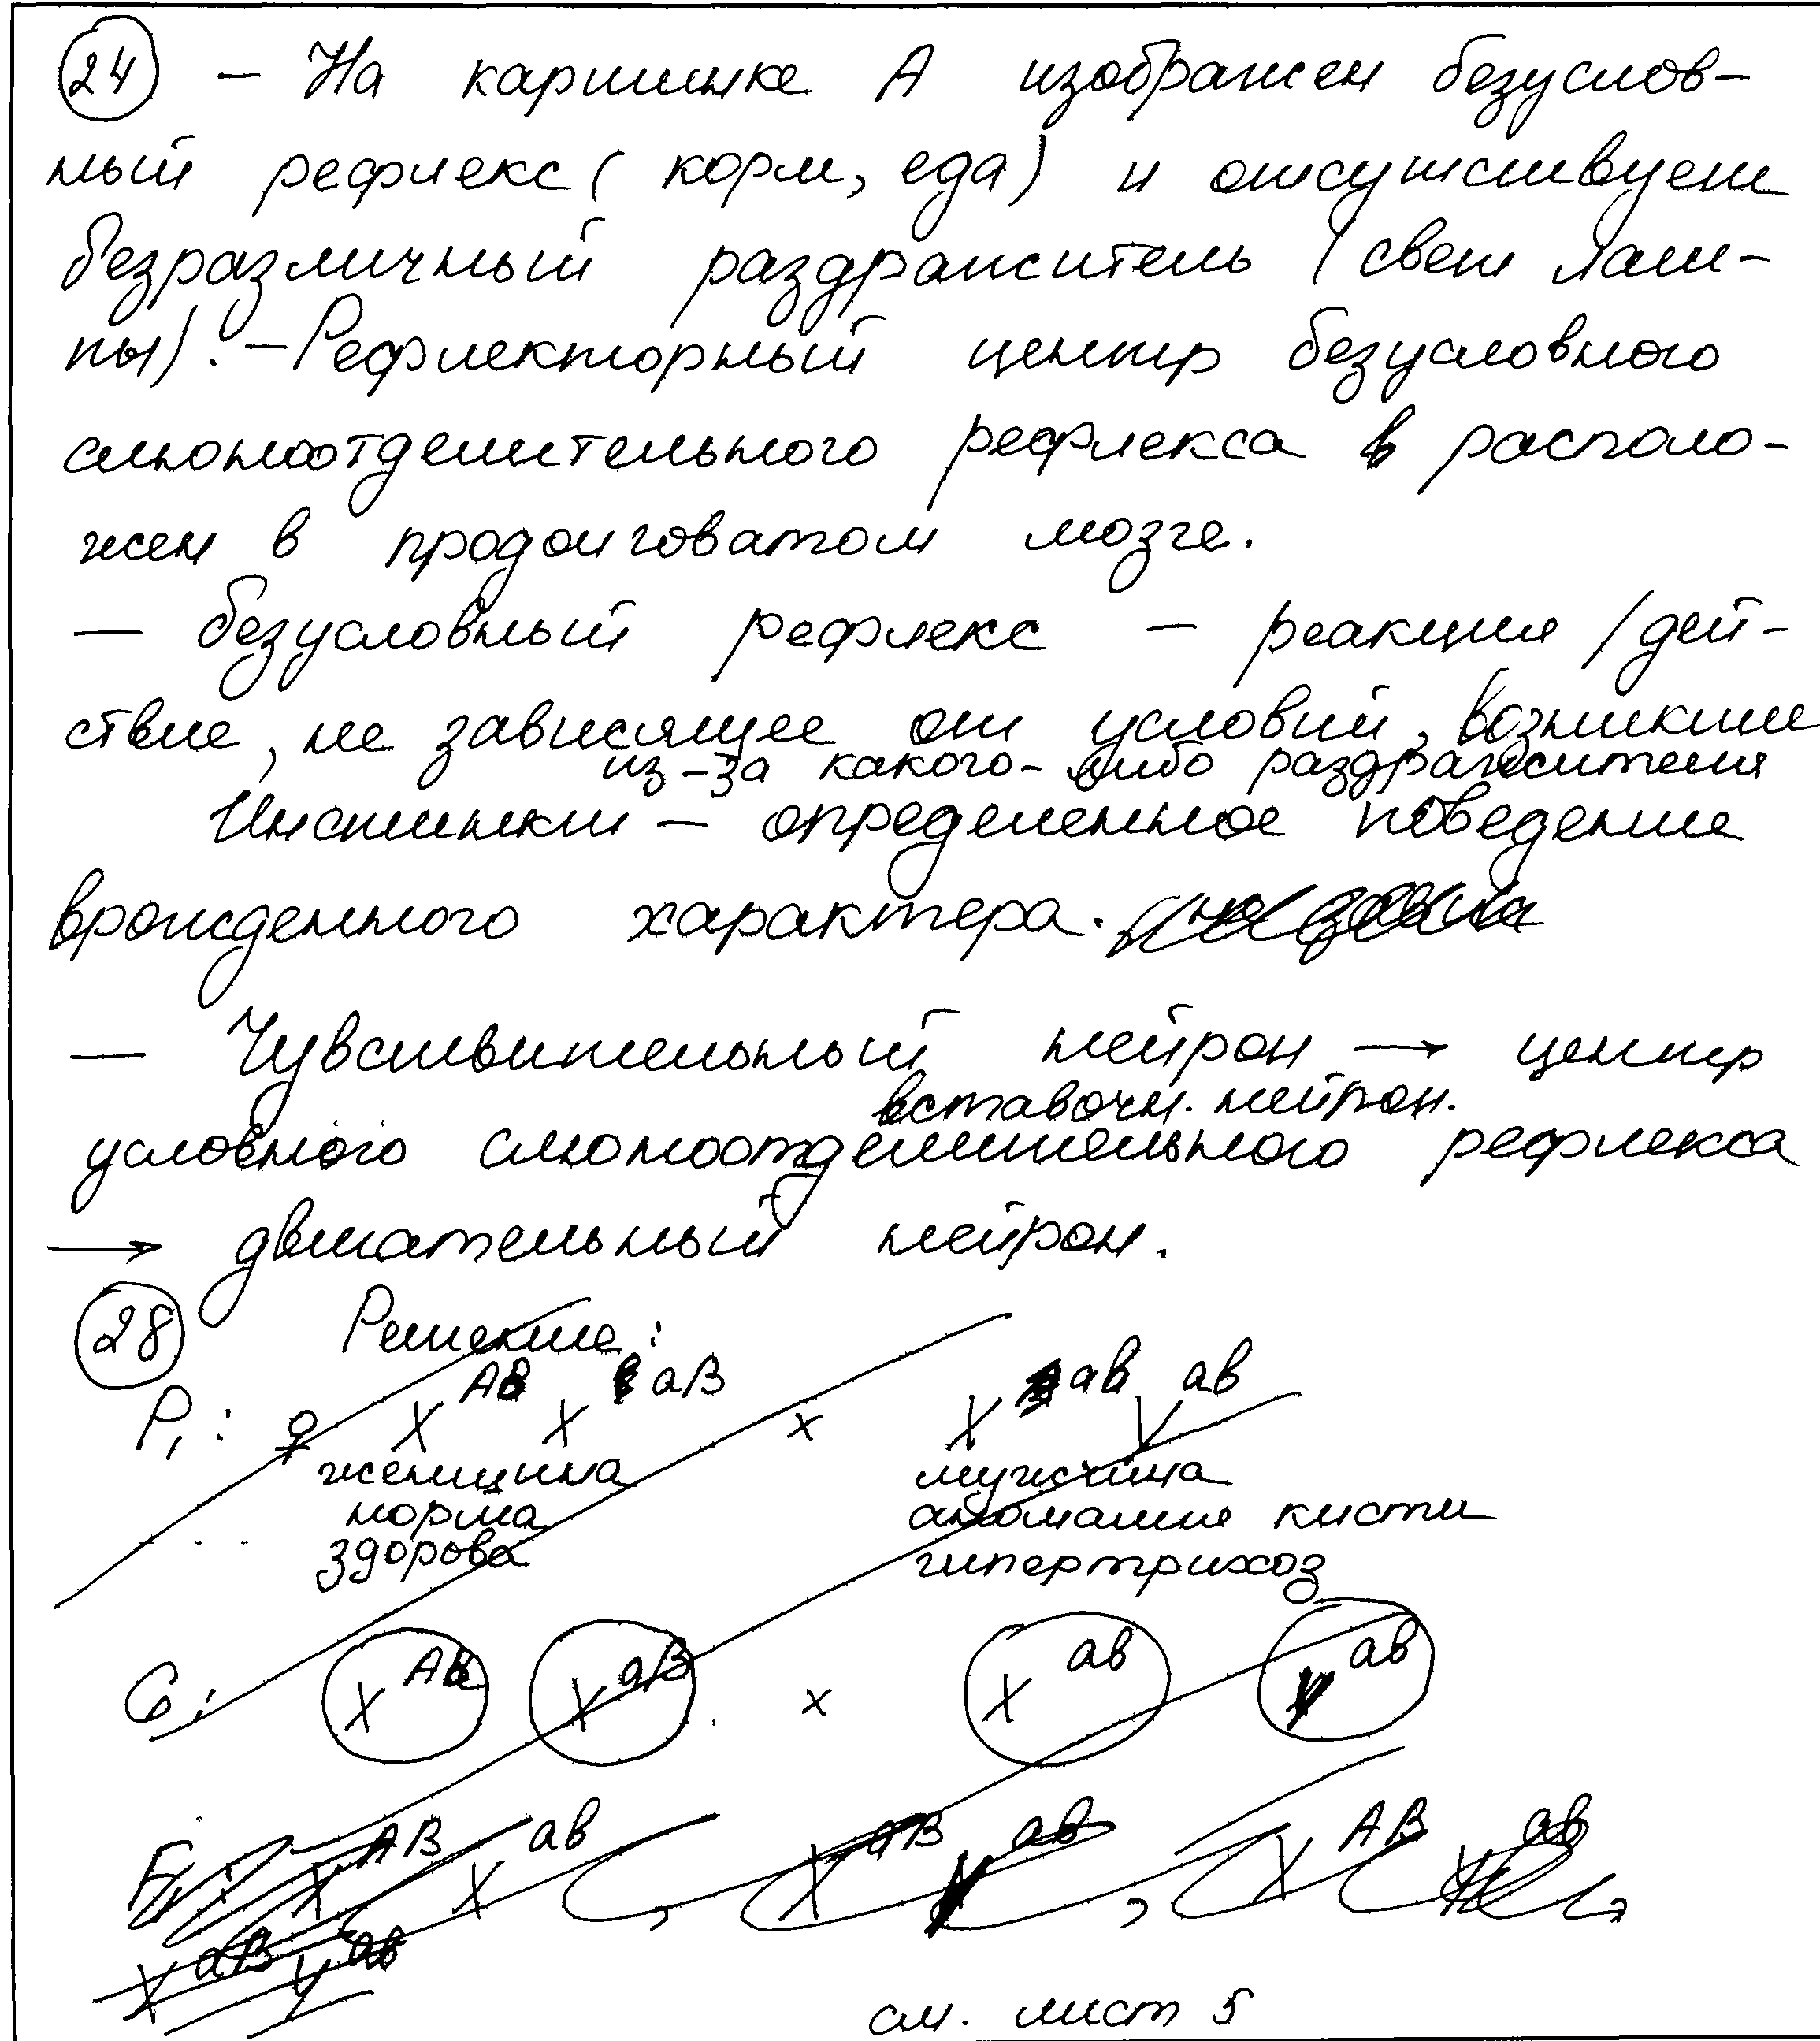 24 – На картинке А изображен безуслов-
ный рефлекс ( корм, еда) и отсутствует
безразличный раздражитель (свет лам-
пы). – Рефлекторный центр безусловного
слюноотделительного рефлекса в располо-
жен в продолговатом мозге.
— безусловный рефлекс – реакция /дей-
ствие, не зависящее от условий, возникшие
из-за какого-либо раздражителя
Инстинкт – определенное поведение
врожденного характера.
— Чувствительный нейрон → центр
вставочн. нейрон.
условного слюноотделительного рефлекса
→ двигательный нейрон.
28 Решение:
P₁: ♀ X^AB X^aB x X^ab Y^ab
женщина мужчина
норма аномалия кисти
здорова гипертрихоз
G: X^AB X^aB x X^ab Y^ab
F₁: X^AB X^ab, X^aB Y^ab, X^AB Y^ab,
X^aB Y^ab
см. лист 5